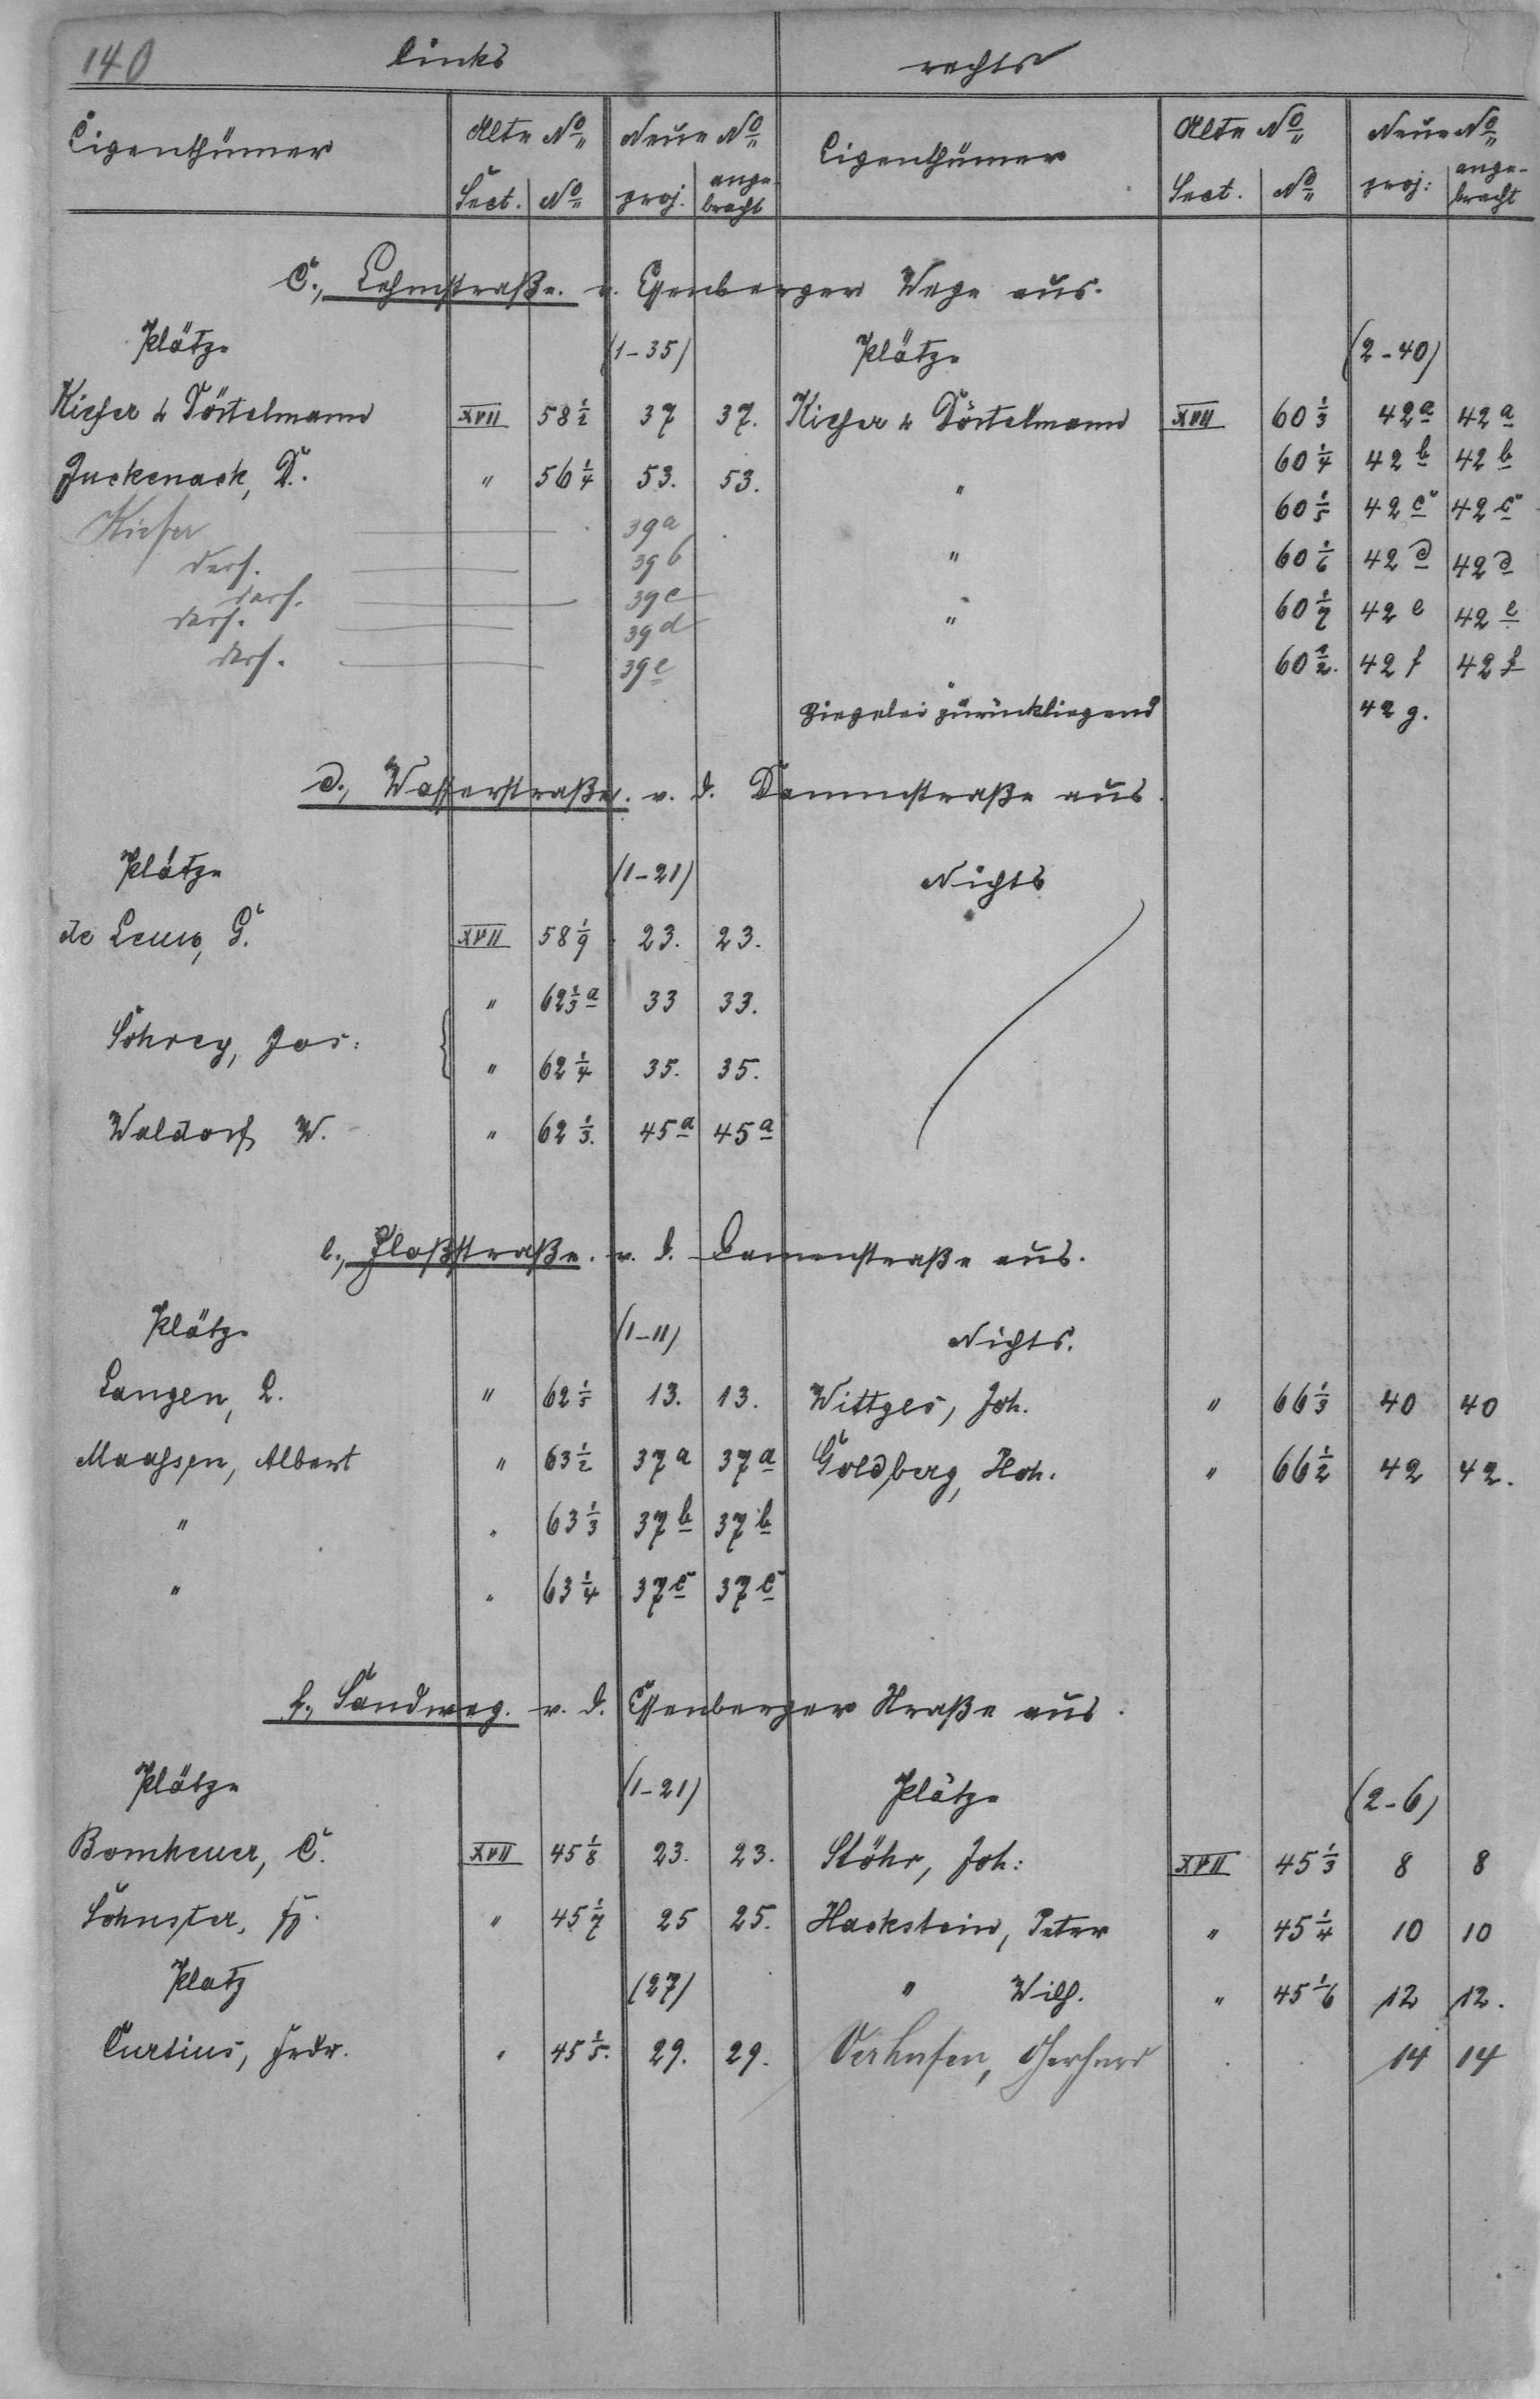 140 links rechts
Eigenthümer Alte No Neue No Eigenthümer Alte No Neue No
Sect. No proj. ange-bracht Sect. No proj: ange-bracht
C., Lehmstraße. v. Essenberger Wege aus.
Plätze (1-35) Plätze (2-40)
Kiefer & Törtelmann XVII 58 1/2 37 37. Kiefer & Törtelmann XVII 60 1/3 42a 42a
60 1/4 42b 42b
Juckenack, D. " 56 1/4 53. 53. "
60 1/5 42c 42c
Kiefer 39a
ders. 39b " 60 1/6 42d 42d
ders. 39c
ders. 39d " 60 1/7 42e 42e
ders. 39e " 60 1/2. 42f 42f
Ziegelei zurückliegend 42g.
d., Wasserstraße. v. d. Dammstraße aus.
Plätze (1-21) Nichts
de Leuw, G. XVII 58 1/9 23. 23.
" 62 1/3 a 33 33.
Schrey, Jos:
" 62 1/4 35. 35.
Waldorf W. " 62 1/3. 45a 45a
e., Floßstraße. v. d. Dammstraße aus.
Plätze (1-11) Nichts.
Langen, L. " 62 1/5 13. 13. Wittges, Joh. " 66 1/3 40 40
Maassen, Albert " 63 1/2 37a 37a Goldberg, Hch. " 66 1/2 42 42.
" " 63 1/3 37b 37b
" " 63 1/4 37c 37c
f., Sandweg. v. d. Essenberger Straße aus.
Plätze (1-21) Plätze (2-6)
Bomheuer, C. XVII 45 1/8 23. 23. Stöhr, Joh: XVII 45 1/3 8 8
Schuster, " 45 1/7 25 25. Hackstein, Peter " 45 1/4 10 10
Platz (27) " Wilh. " 45 1/6 12 12.
Curtius, Fredr. " 45 1/5. 29. 29. Verhufen, Gerhard 14 14